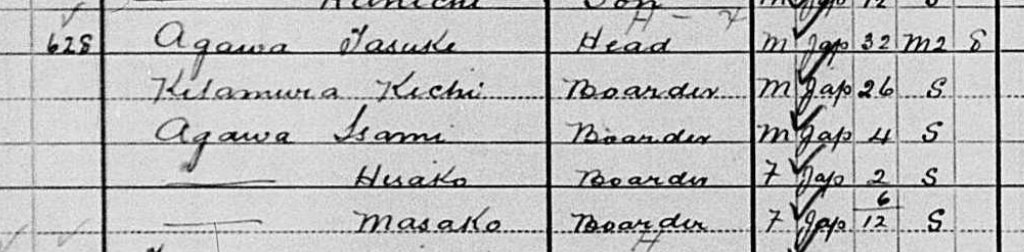 Son Jap 12 S
628 Agawa Tasuke Head M Jap 32 M2 8
Kitamura Kichi Boarder M Jap 26 S
Agawa Isami Boarder M Jap 4 S
— Hisako Boarder F Jap 2 S
— Masako Boarder F Jap 6/12 S